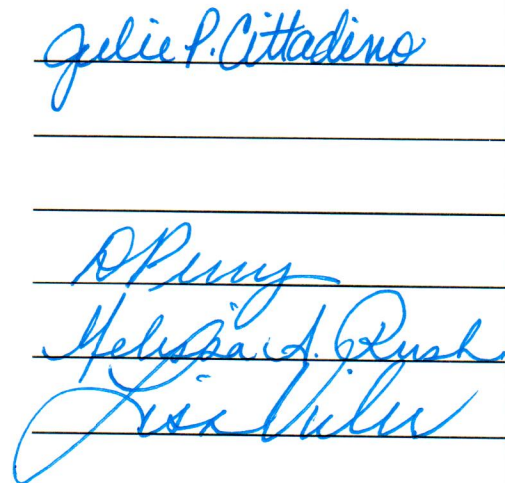 Julie P. Cittadino
D Perry
Melissa A. Rush
Lisa